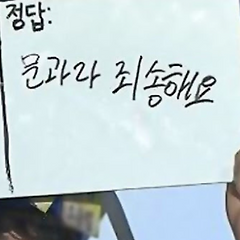 정답:
문과라 죄송해요